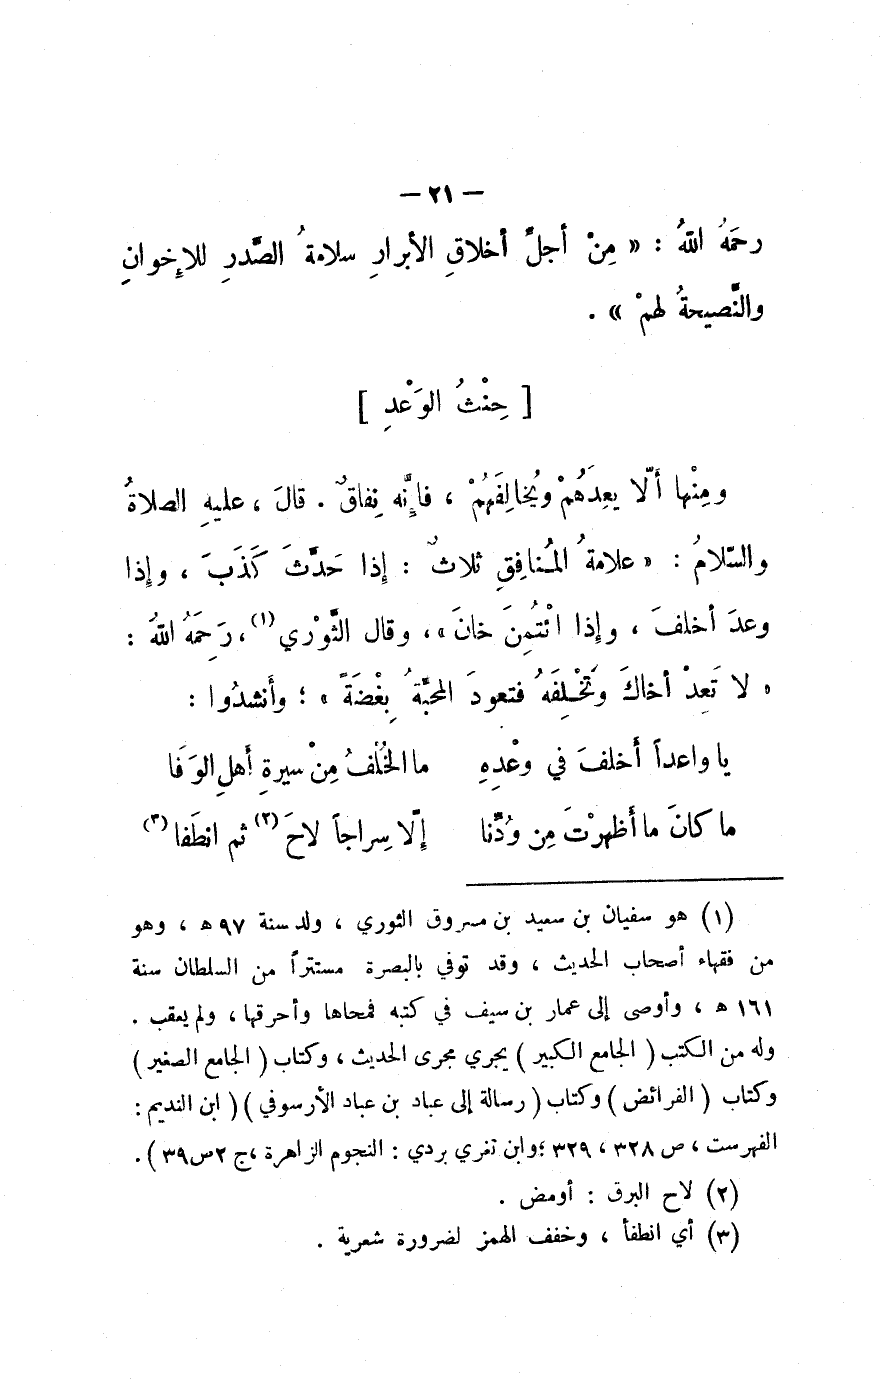 — ٢١ —
رحمَهُ اللهُ : « مِنْ أجلِّ أخلاقِ الأبرارِ سلامةُ الصَّدرِ للإِخوانِ
والنَّصيحةُ لهمْ » .
[ حِنْثُ الوَعْدِ ]
ومِنْها أَلّا يعِدَهُمْ ويُخالِفَهُمْ ، فإِنَّه نِفاقٌ . قالَ ، عليهِ الصلاةُ
والسّلامُ : « علامةُ المُنافِقِ ثلاثٌ : إِذا حَدَّثَ كَذَبَ ، وإِذا
وعدَ أخلفَ ، وإِذا ائْتُمِنَ خانَ » ، وقال الثَّوْري (١) ، رَحِمَهُ اللهُ :
« لا تَعِدْ أخاكَ وتَخْلِفَهُ فتعودَ المحبّةُ بِغْضَةً » ؛ وأَنشدُوا :
يا واعداً أَخلفَ في وعْدِهِ ما الخُلْفُ مِنْ سيرةِ أَهلِ الوَفَا
ما كانَ ما أَظهرْتَ مِن وُدِّنا إِلّا سِراجاً لاحَ (٢) ثم انطَفا (٣)
(١) هو سفيان بن سعيد بن مسروق الثوري ، ولد سنة ٩٧ ه ، وهو
من فقهاء أصحاب الحديث ، وقد توفي بالبصرة مستتراً من السلطان سنة
١٦١ ه ، وأوصى إلى عمار بن سيف في كتبه فمحاها وأحرقها ، ولم يعقب .
وله من الكتب ( الجامع الكبير ) يجري مجرى الحديث ، وكتاب ( الجامع الصغير )
وكتاب ( الفرائض ) وكتاب ( رسالة إلى عباد بن عباد الأرسوفي ) ( ابن النديم :
الفهرست ، ص ٣٢٨ ، ٣٢٩ ؛ وابن تغري بردي : النجوم الزاهرة ، ج ٢ ص ٣٩ ) .
(٢) لاح البرق : أومض .
(٣) أي انطفأ ، وخفف الهمز لضرورة شعرية .